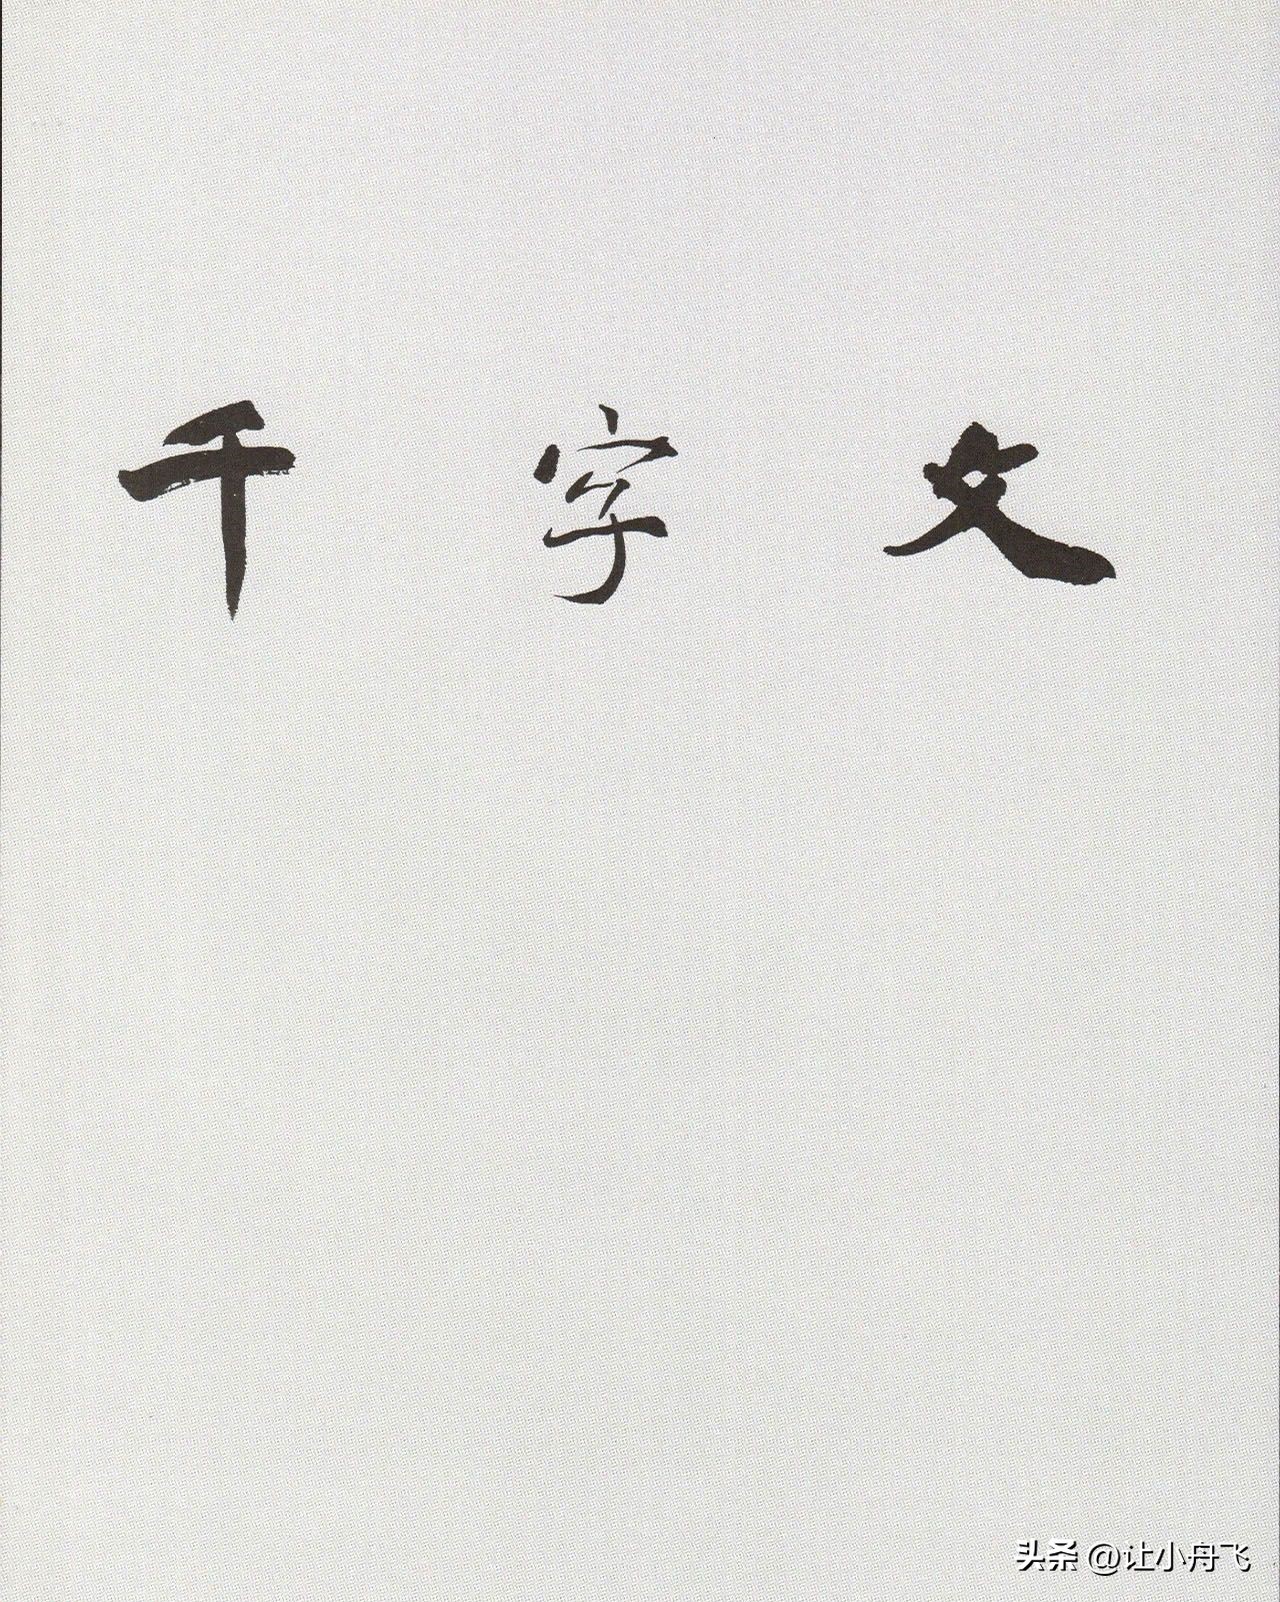 千字文
头条 @让小舟飞